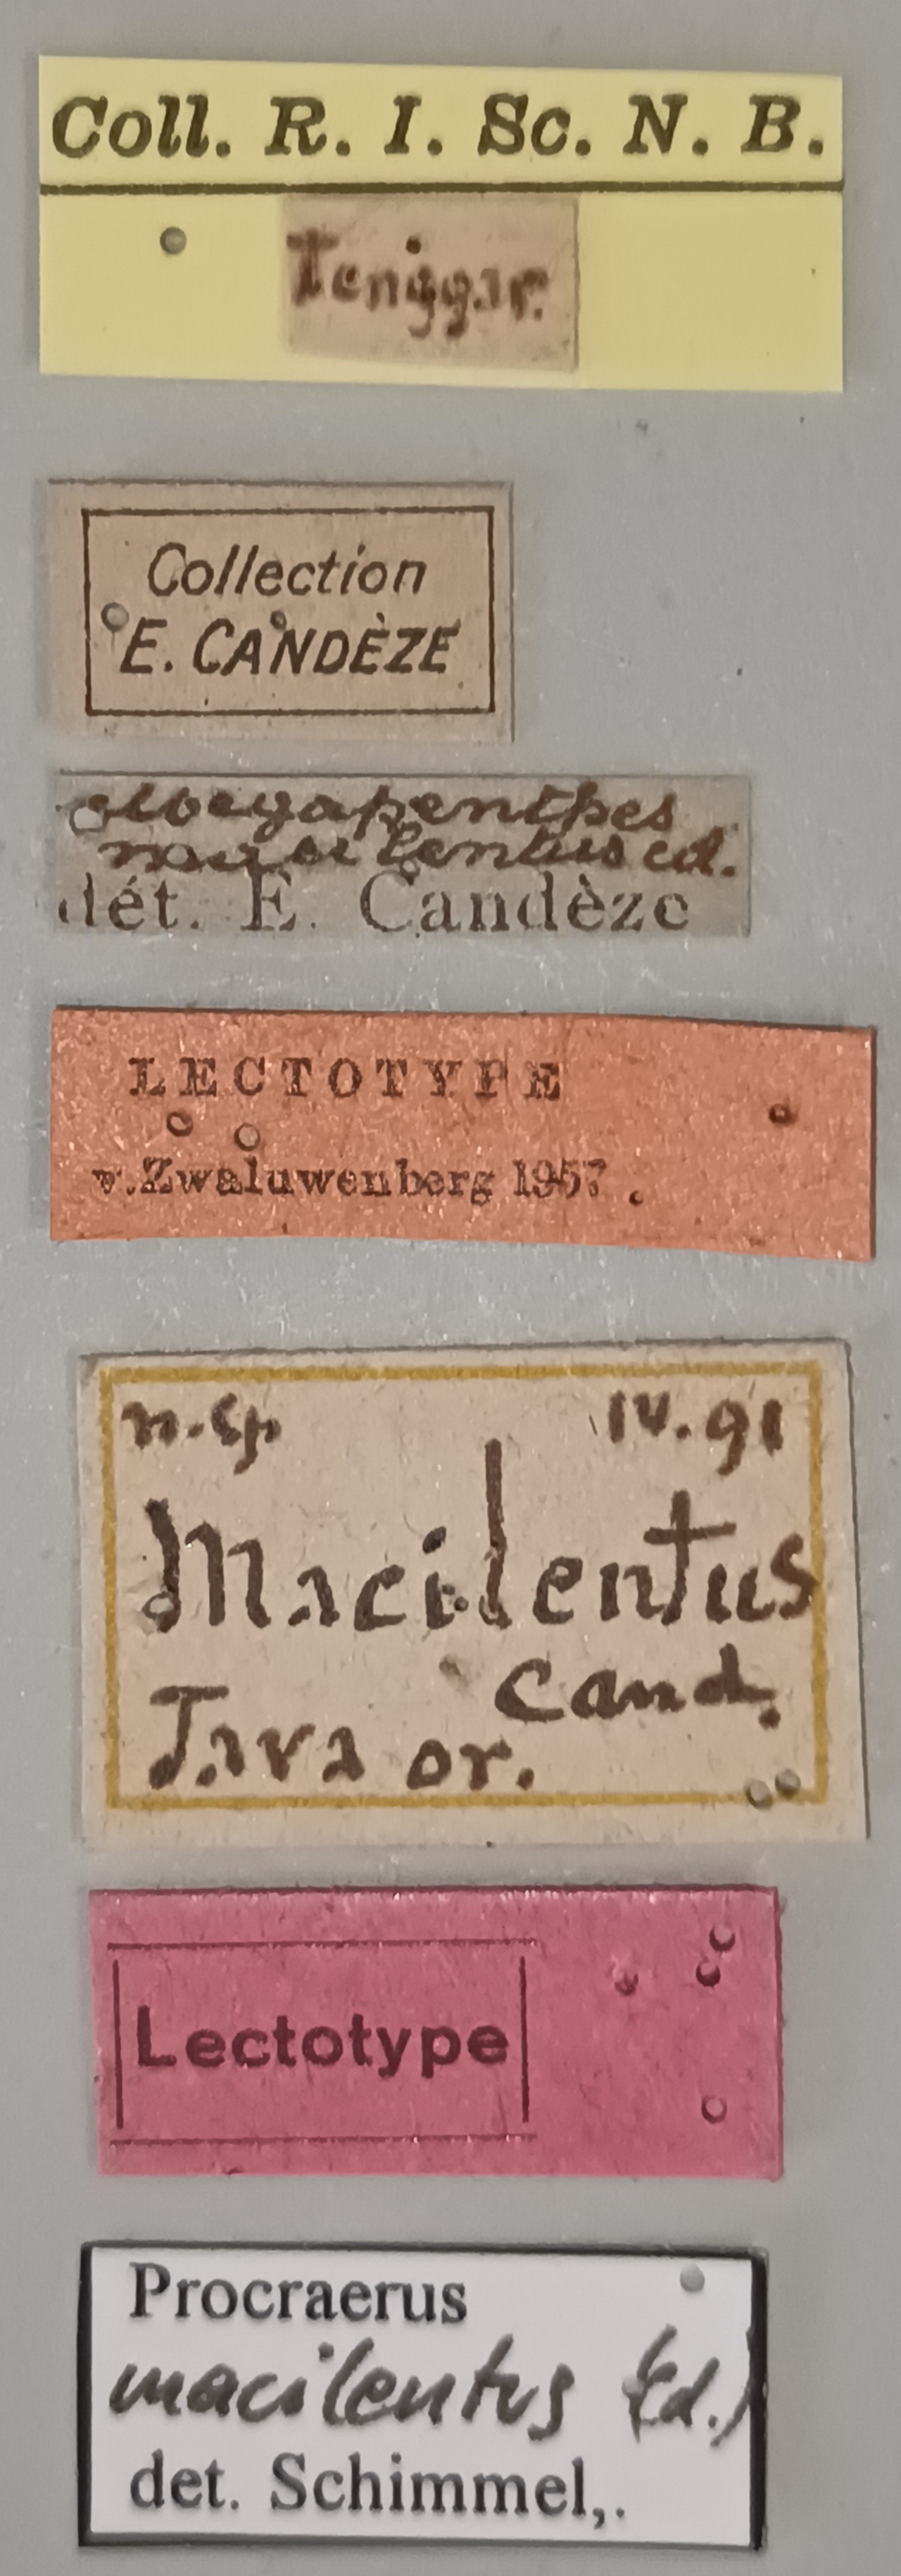 Coll. R. I. Sc. N. B.
Tenggar.
Collection
E. CANDÈZE
Megapenthes
macilentus cd.
dét. E. Candèze
LECTOTYPE
v.Zwaluwenberg 1957.
n.sp IV.91
Macilentus
Cand.
Java or.
Lectotype
Procraerus
macilentus (Cd.)
det. Schimmel,.